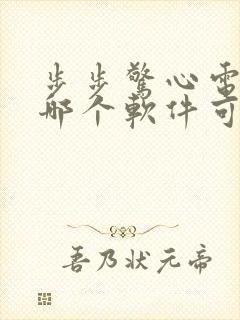 步步驚心電
哪个軟件可
吾乃状元帝